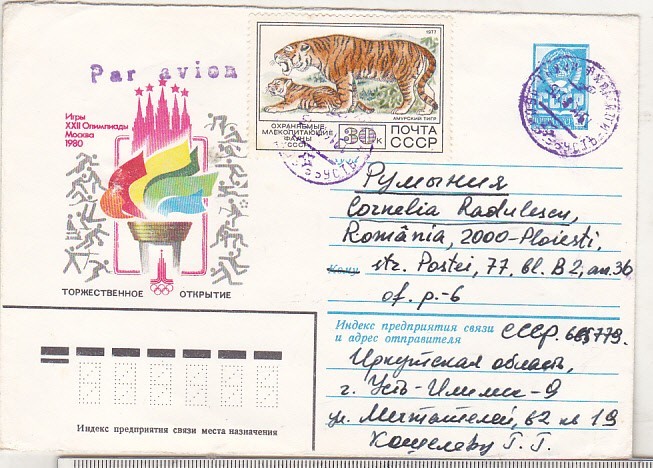 Par avion
Игры
XXII Олимпиады
Москва
1980
ТОРЖЕСТВЕННОЕ ОТКРЫТИЕ
1977
АМУРСКИЙ ТИГР
ОХРАНЯЕМЫЕ
МЛЕКОПИТАЮЩИЕ
ФАУНЫ
СССР
30 К
ПОЧТА
СССР
Румыния
Cornelia Radulescu,
România, 2000-Ploiesti,
Кому str. Postei, 77, bl. B2, an. 36
of. p.-6
Индекс предприятия связи
и адрес отправителя
СССР. 665779.
Иркутская область,
г. Усть-Илимск-9
ул. Мечтателей, 62 кв 19
Кощелеву Г. Г.
Индекс предприятия связи места назначения